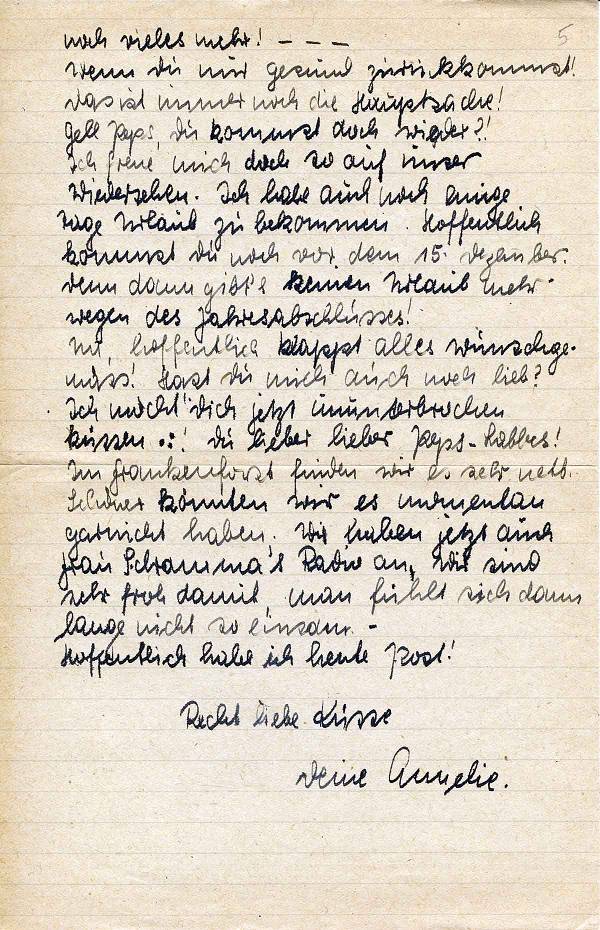 5
noch vieles mehr! – – –
Wenn du nur gesund zurückkommst!
Das ist immer noch die Hauptsache!
Gell Peps, du kommst doch wieder?!
Ich freue mich doch so auf unser
Wiedersehen. Ich habe auch noch einige
Tage Urlaub zu bekommen. Hoffentlich
kommst du noch vor dem 15. Dezember.
denn dann gibt's keinen Urlaub mehr
wegen des Jahresabschlusses!
Na, hoffentlich klappt alles wunschge-
mäss! Hast du mich auch noch lieb?
Ich möcht' Dich jetzt ununterbrochen
küssen ..! du lieber lieber Peps-
Im Frankenforst finden wir es sehr nett.
Schöner könnten wir es momentan
garnicht haben. Wir haben jetzt auch
Frau Schramma's Radio an, wir sind
sehr froh damit man fühlt sich dann
lange nicht so einsam. –
Hoffentlich habe ich heute Post!
Recht liebe Küsse
deine Annelie.